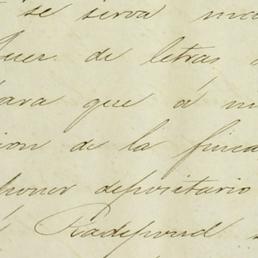 se serva
Juez de letras
para que á
ion de la finca
poner depositario